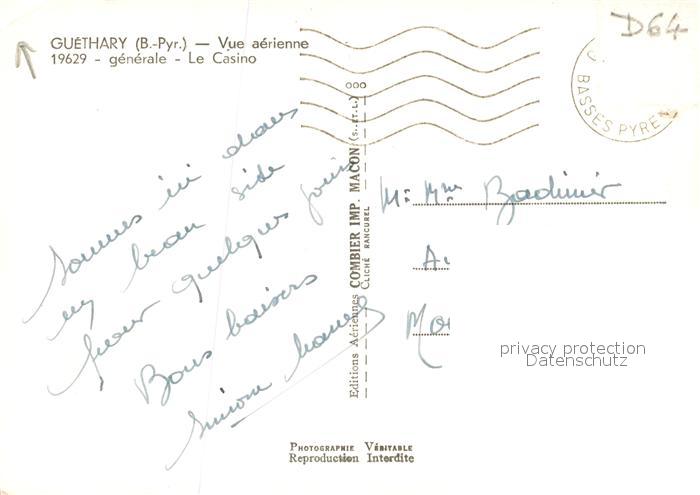 D64
GUÉTHARY (B.-Pyr.) — Vue aérienne
19629 - générale - Le Casino
BASSES PYRÉN
Sommes ici dans
un beau site
pour quelques jours
Bons baisers
Simone
Editions Aériennes COMBIER IMP. MACON (S.-ET-L.)
CLICHÉ RANCUREL
Mr Mme Badimier
A
Mo
privacy protection
Datenschutz
PHOTOGRAPHIE VÉRITABLE
Reproduction Interdite